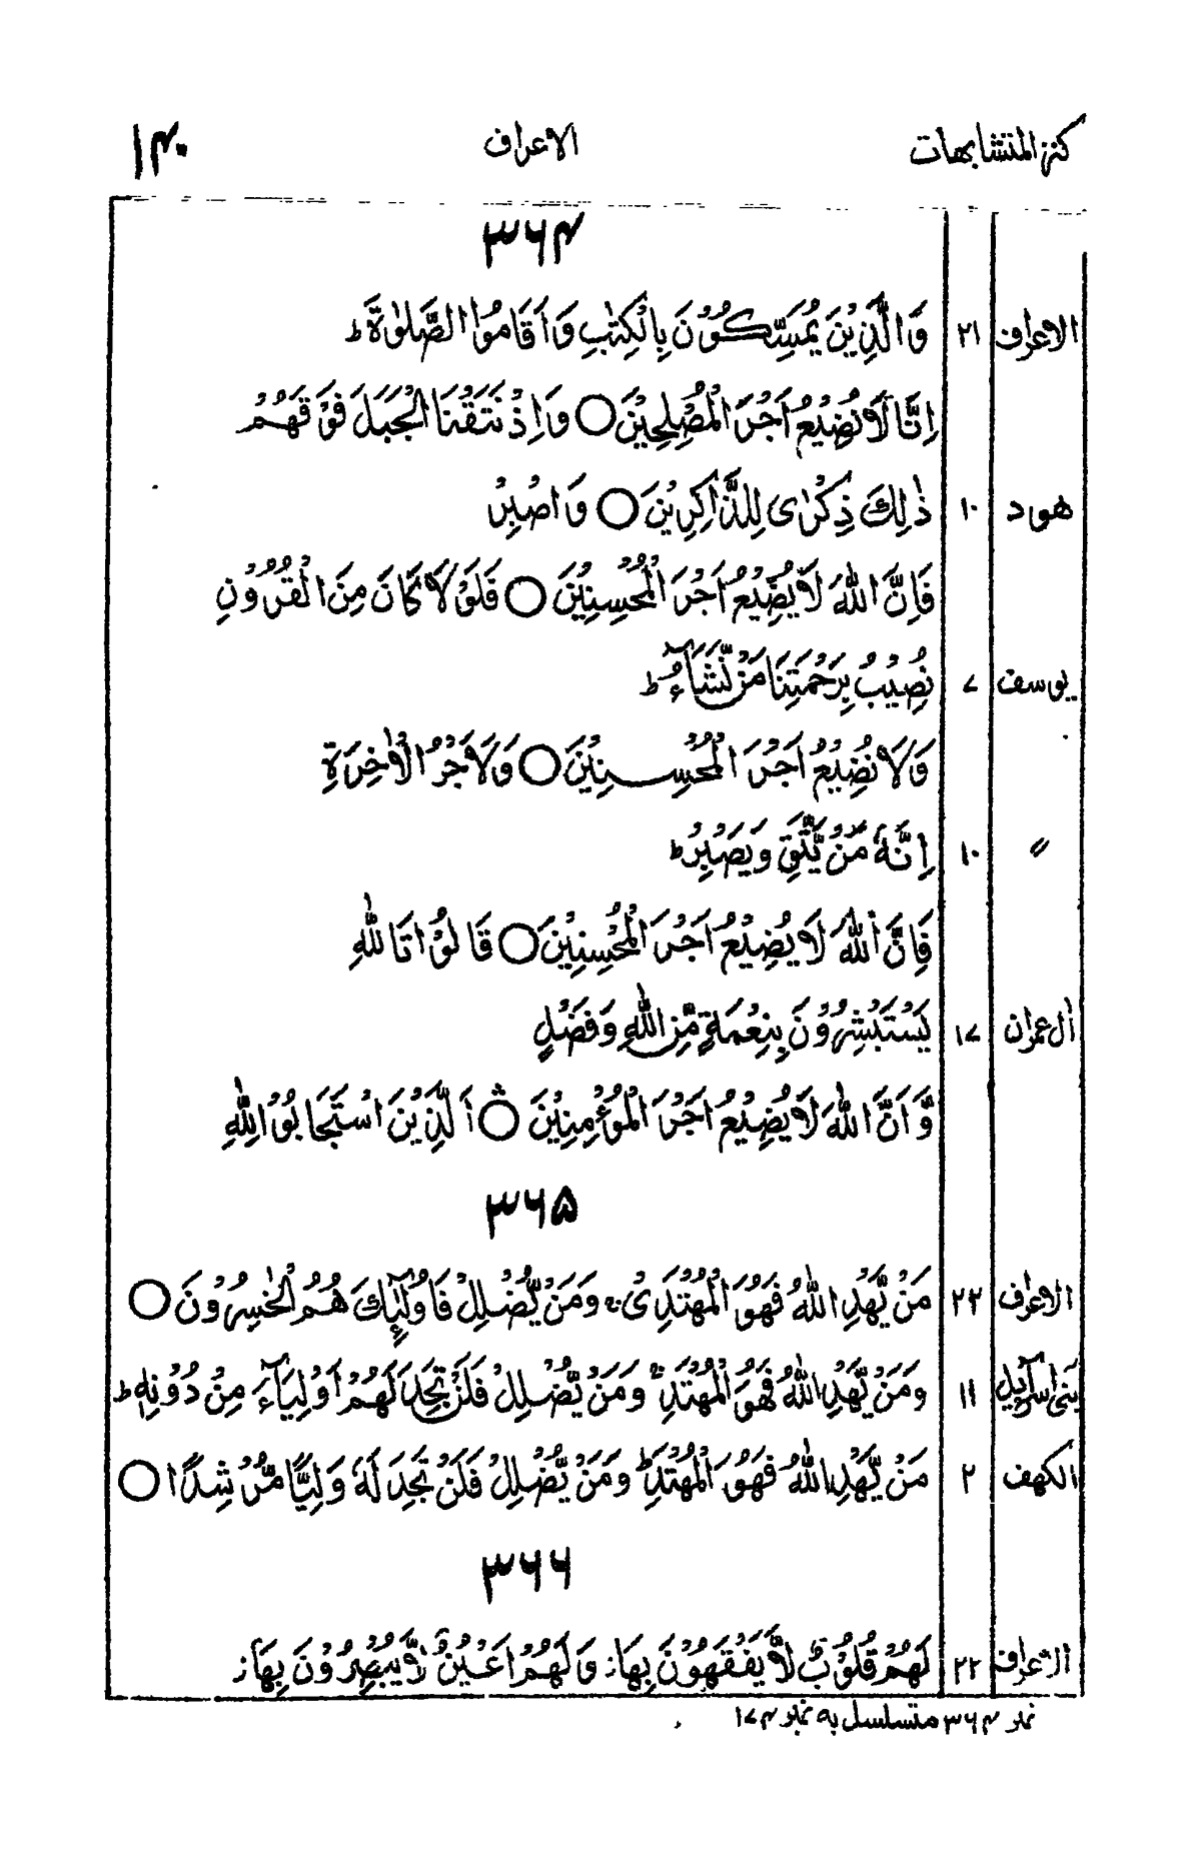 كنز المتشابهات الاعراف ۱۴۰
۳۶۴
الاعراف ۲۱ وَالَّذِيْنَ يُمَسِّكُوْنَ بِالْكِتٰبِ وَاَقَامُوا الصَّلٰوةَ ؕ
اِنَّا لَا نُضِيْعُ اَجْرَ الْمُصْلِحِيْنَ ○ وَاِذْ نَتَقْنَا الْجَبَلَ فَوْقَهُمْ
هود ۱۰ ذٰلِكَ ذِكْرٰى لِلذّٰكِرِيْنَ ○ وَاصْبِرْ
فَاِنَّ اللّٰهَ لَا يُضِيْعُ اَجْرَ الْمُحْسِنِيْنَ ○ فَلَوْلَا كَانَ مِنَ الْقُرُوْنِ
يوسف ۷ نُصِيْبُ بِرَحْمَتِنَا مَنْ نَّشَآءُ ؕ
وَلَا نُضِيْعُ اَجْرَ الْمُحْسِنِيْنَ ○ وَلَاَجْرُ الْاٰخِرَةِ
〃 ۱۰ اِنَّهٗ مَنْ يَّتَّقِ وَيَصْبِرْ ؕ
فَاِنَّ اللّٰهَ لَا يُضِيْعُ اَجْرَ الْمُحْسِنِيْنَ ○ قَالُوْا تَاللّٰهِ
اٰل عمران ۱۷ يَسْتَبْشِرُوْنَ بِنِعْمَةٍ مِّنَ اللّٰهِ وَفَضْلٍ
وَّاَنَّ اللّٰهَ لَا يُضِيْعُ اَجْرَ الْمُؤْمِنِيْنَ ○ اَلَّذِيْنَ اسْتَجَابُوْا لِلّٰهِ
۳۶۵
الاعراف ۲۲ مَنْ يَّهْدِ اللّٰهُ فَهُوَ الْمُهْتَدِىْ ۚ وَمَنْ يُّضْلِلْ فَاُولٰٓئِكَ هُمُ الْخٰسِرُوْنَ ○
بنى اسرآييل ۱۱ وَمَنْ يَّهْدِ اللّٰهُ فَهُوَ الْمُهْتَدِ ۚ وَمَنْ يُّضْلِلْ فَلَنْ تَجِدَ لَهُمْ اَوْلِيَآءَ مِنْ دُوْنِهٖ ؕ
الكهف ۲ مَنْ يَّهْدِ اللّٰهُ فَهُوَ الْمُهْتَدِ ؕ وَمَنْ يُّضْلِلْ فَلَنْ تَجِدَ لَهٗ وَلِيًّا مُّرْشِدًا ○
۳۶۶
الاعراف ۲۲ لَهُمْ قُلُوْبٌ لَّا يَفْقَهُوْنَ بِهَا ز وَلَهُمْ اَعْيُنٌ لَّا يُبْصِرُوْنَ بِهَا ز
نمبر ۳۶۴ متسلسل به نمبر ۱۷۴